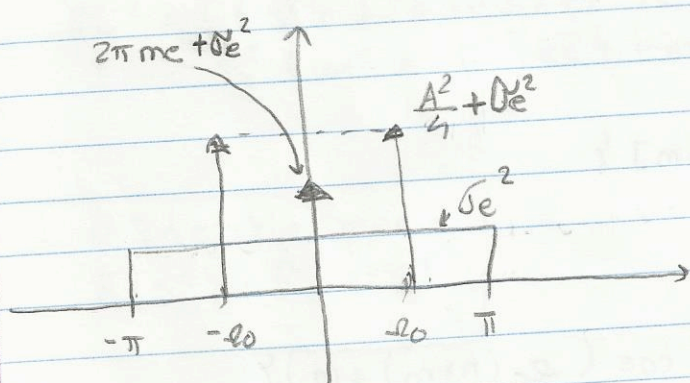 2π me + σe²
A²/4 + σe²
σe²
-π -Ω0 Ω0 π